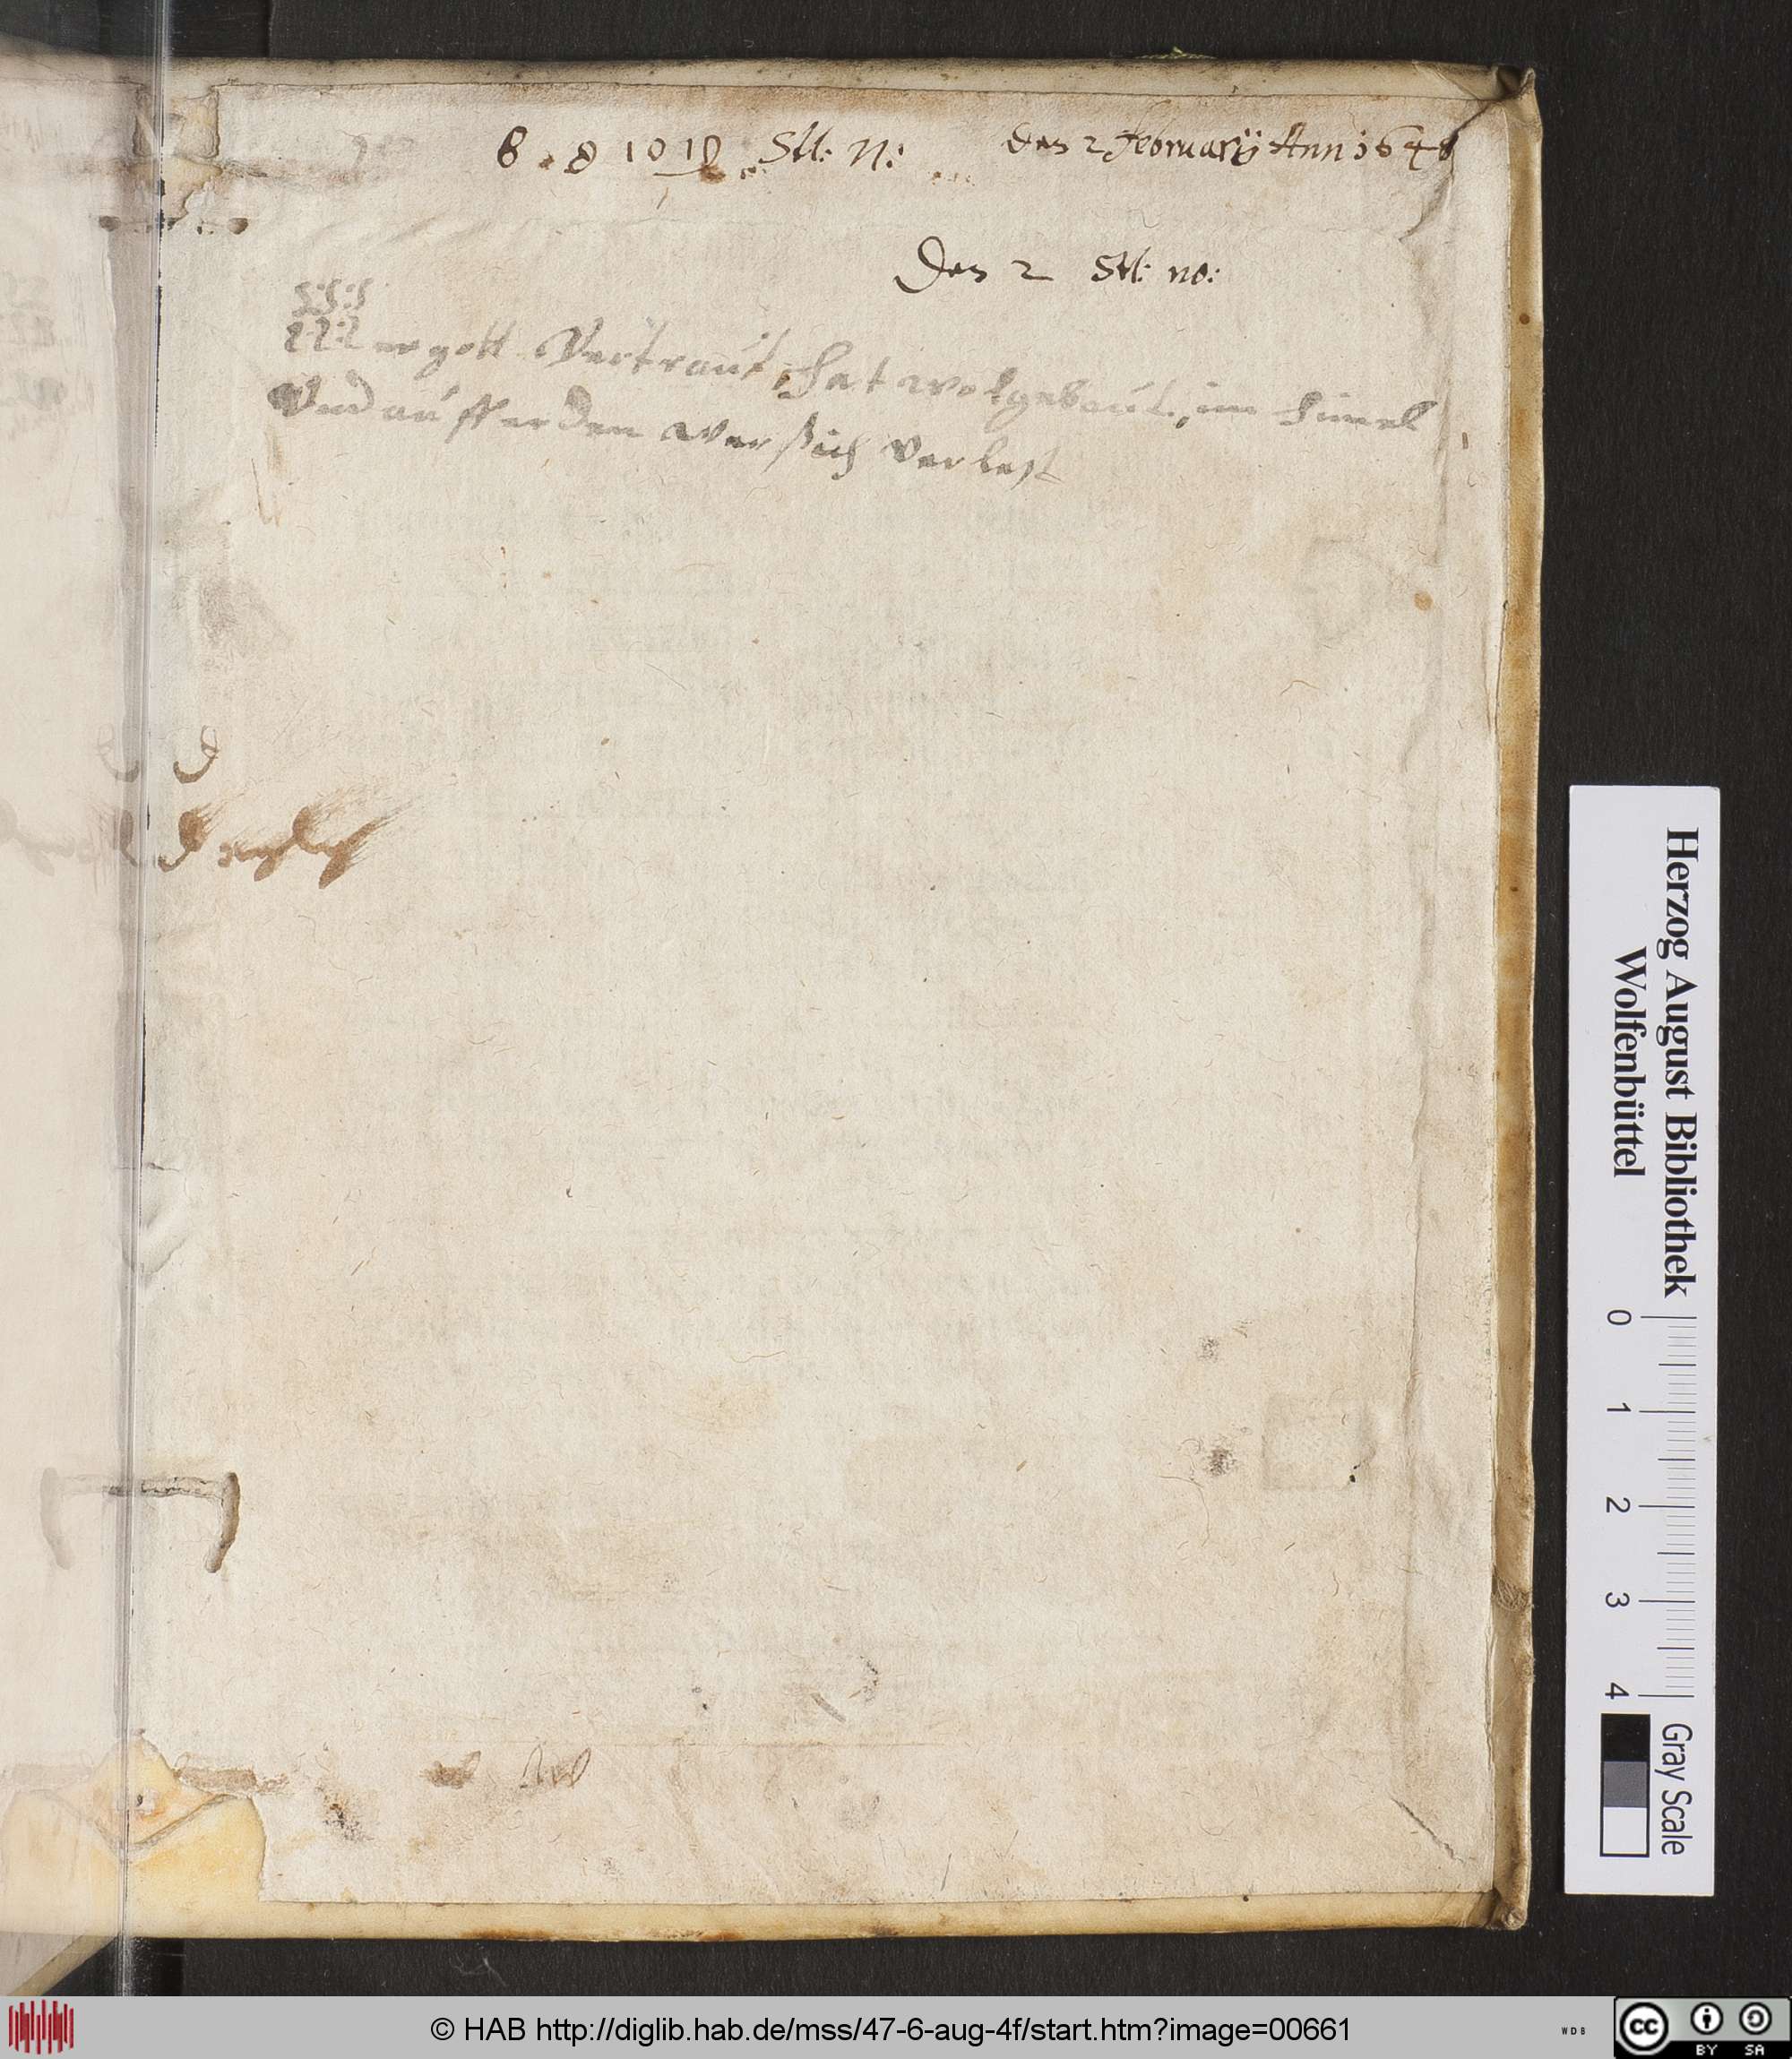 8 . 8 10 10 Stl: N:
des 2 Februarÿ Ann 164
Des 2 Stl: no:
Wer gott Vertraut, hat wolgebaut, im himel
Vnd auff erden wer sich verlest
Herzog August Bibliothek
Wolfenbüttel
0 1 2 3 4
Gray Scale
© HAB http://diglib.hab.de/mss/47-6-aug-4f/start.htm?image=00661
WDB
cc BY SA